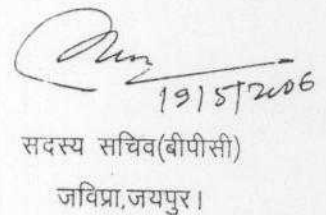 19/5/2006
सदस्य सचिव(बीपीसी)
जविप्रा,जयपुर।